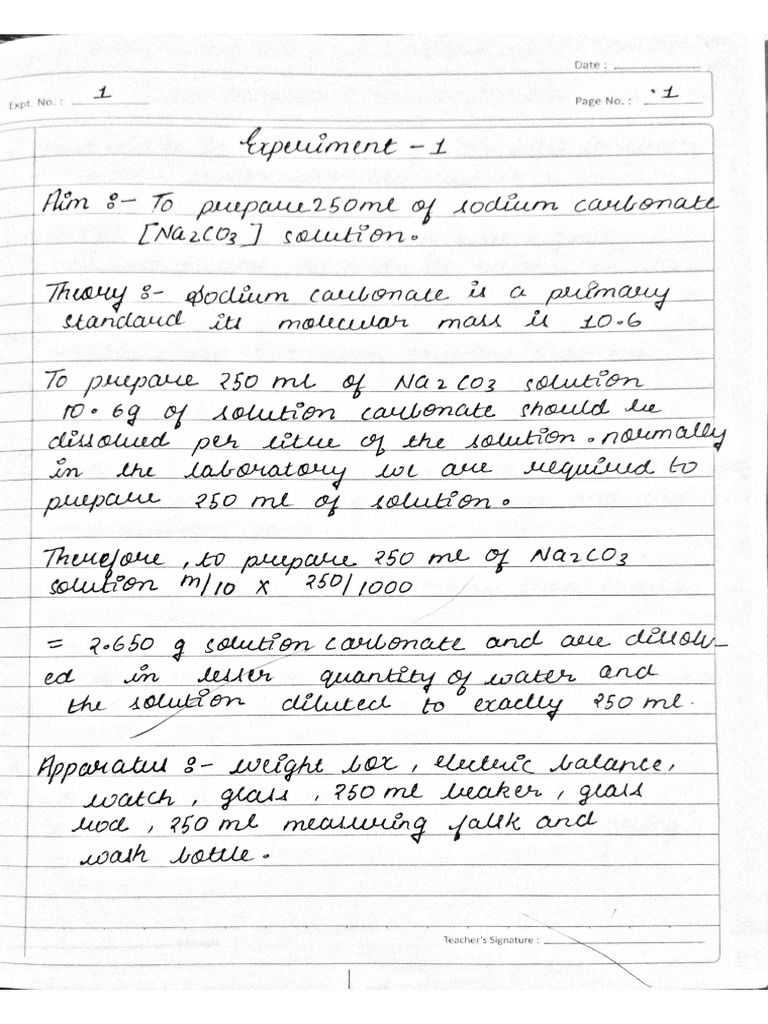 Date :
Expt. No. : 1
Page No. : 1
Experiment - 1
Aim :- To prepare 250ml of sodium carbonate
[Na2CO3] solution.
Theory :- Sodium carbonate is a primary
standard its molecular mass is 10.6
To prepare 250 ml of Na2CO3 solution
10.6g of solution carbonate should be
dissolved per litre of the solution. normally
in the laboratory we are required to
prepare 250 ml of solution.
Therefore, to prepare 250 ml of Na2CO3
solution m/10 x 250/1000
= 2.650 g solution carbonate and are dissolv-
ed in lesser quantity of water and
the solution diluted to exactly 250 ml.
Apparatus :- weight box, electric balance,
watch, glass, 250 ml beaker, glass
rod, 250 ml measuring falsk and
wash bottle.
Teacher's Signature :